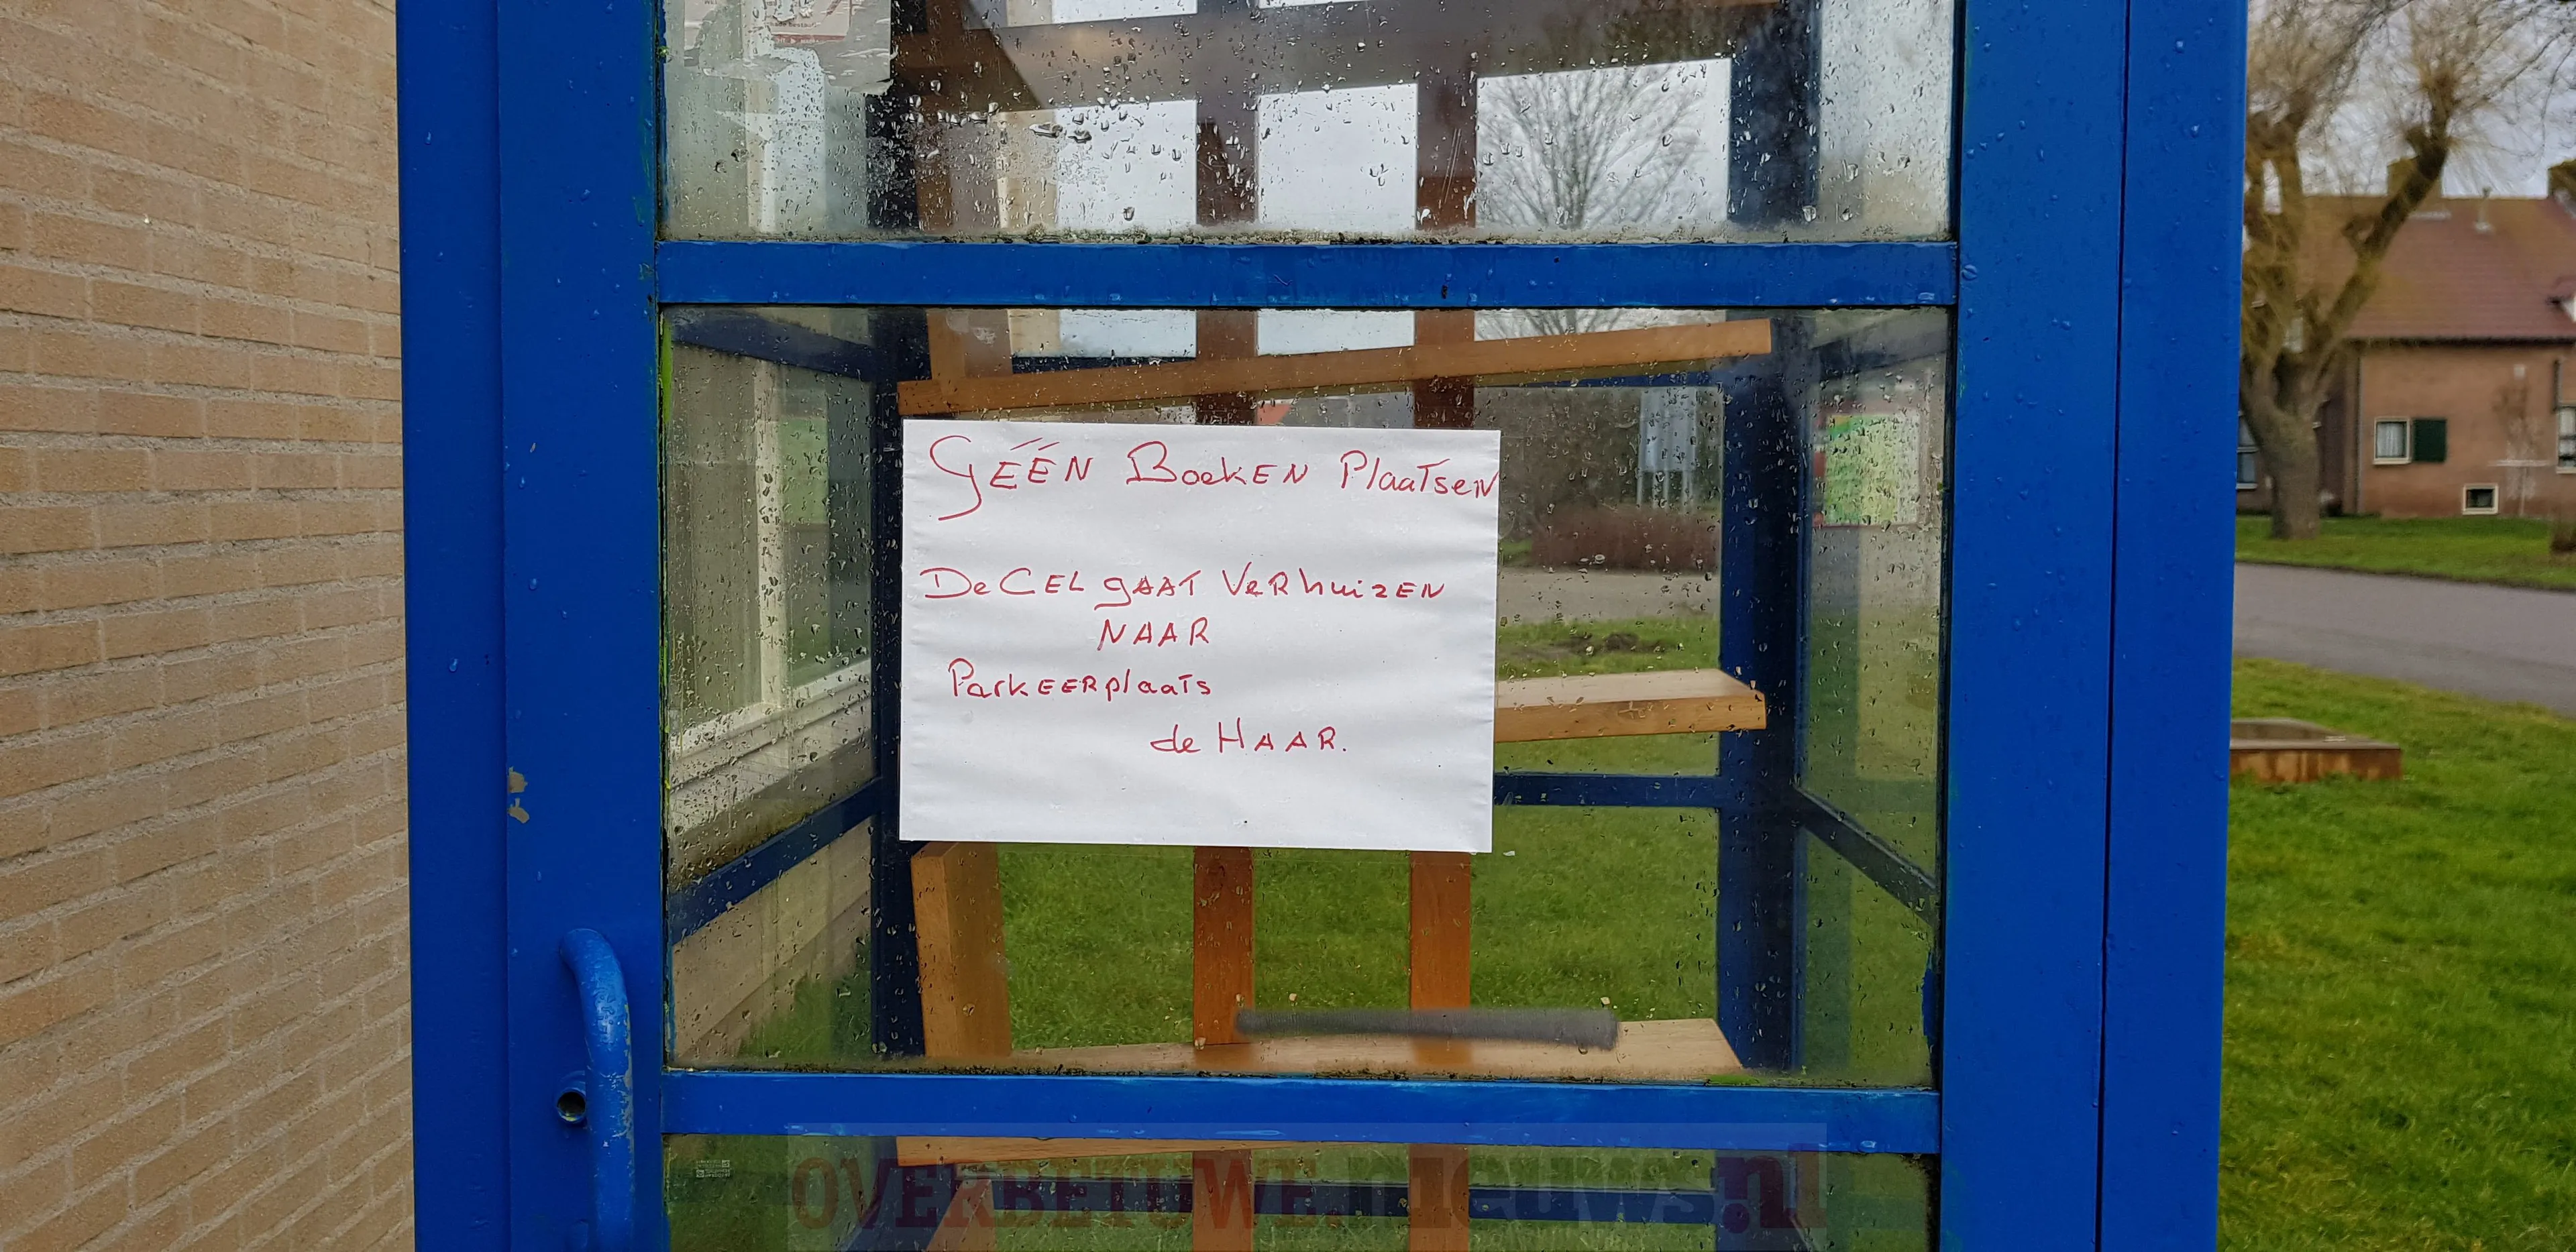 GÉÉN BoekEN PlaaTseN
De CEL gAAT VeRhuizEN
NAAR
ParkEERplaats
de HAAR.
OVERBETUWE.nieuws.nl